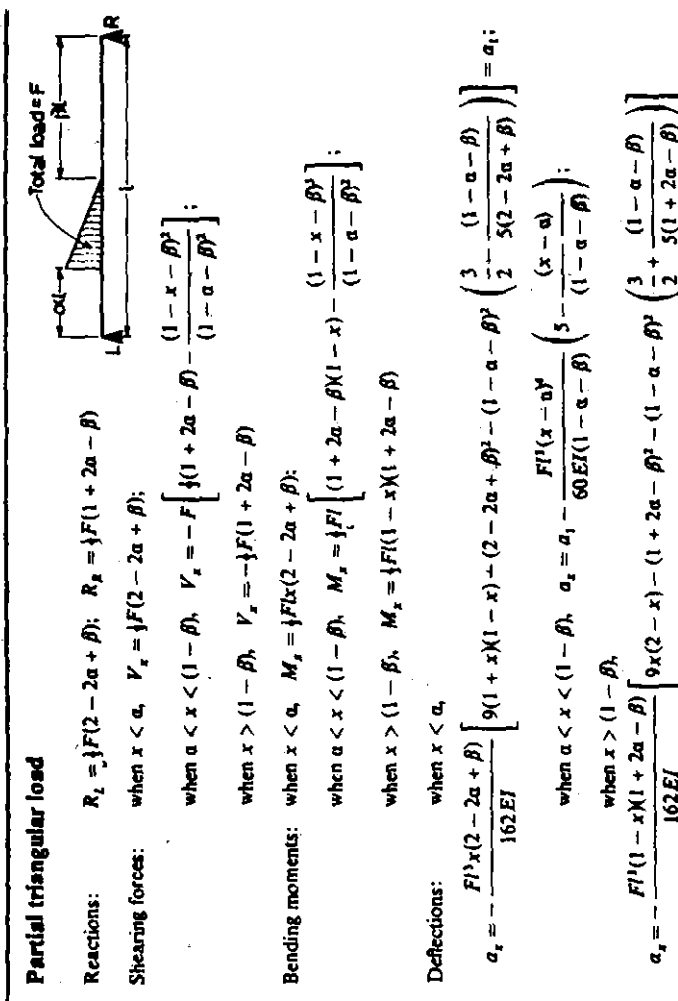 Partial triangular load
Total load = F
αl
βl
l
L
R
Reactions: R_L = ⅓F(2 − 2α + β); R_R = ⅓F(1 + 2α − β)
Shearing forces: when x < α, V_x = ⅓F(2 − 2α + β);
when α < x < (1 − β), V_x = −F[⅓(1 + 2α − β) − (1 − x − β)²/(1 − α − β)²];
when x > (1 − β), V_x = −⅓F(1 + 2α − β)
Bending moments: when x < α, M_x = ⅓Flx(2 − 2α + β);
when α < x < (1 − β), M_x = ⅓Fl[(1 + 2α − β)(1 − x) − (1 − x − β)³/(1 − α − β)²];
when x > (1 − β), M_x = ⅓Fl(1 − x)(1 + 2α − β)
Deflections: when x < α,
a_x = − Fl³x(2 − 2α + β)/162EI [9(1 + x)(1 − x) − (2 − 2α + β)² − (1 − α − β)² (3/2 − (1 − α − β)/5(2 − 2α + β))] = a₁;
when α < x < (1 − β), a_x = a₁ − Fl³(x − α)⁴/60EI(1 − α − β) (5 − (x − α)/(1 − α − β));
when x > (1 − β),
a_x = − Fl³(1 − x)(1 + 2α − β)/162EI [9x(2 − x) − (1 + 2α − β)² − (1 − α − β)² (3/2 + (1 − α − β)/5(1 + 2α − β))]